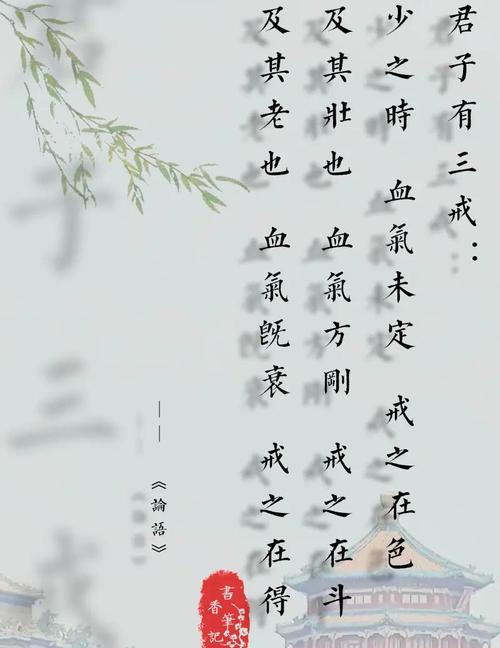 君子有三戒：
少之時 血氣未定 戒之在色
及其壯也 血氣方剛 戒之在斗
及其老也 血氣既衰 戒之在得
——《論語》
書香筆記
子三戒